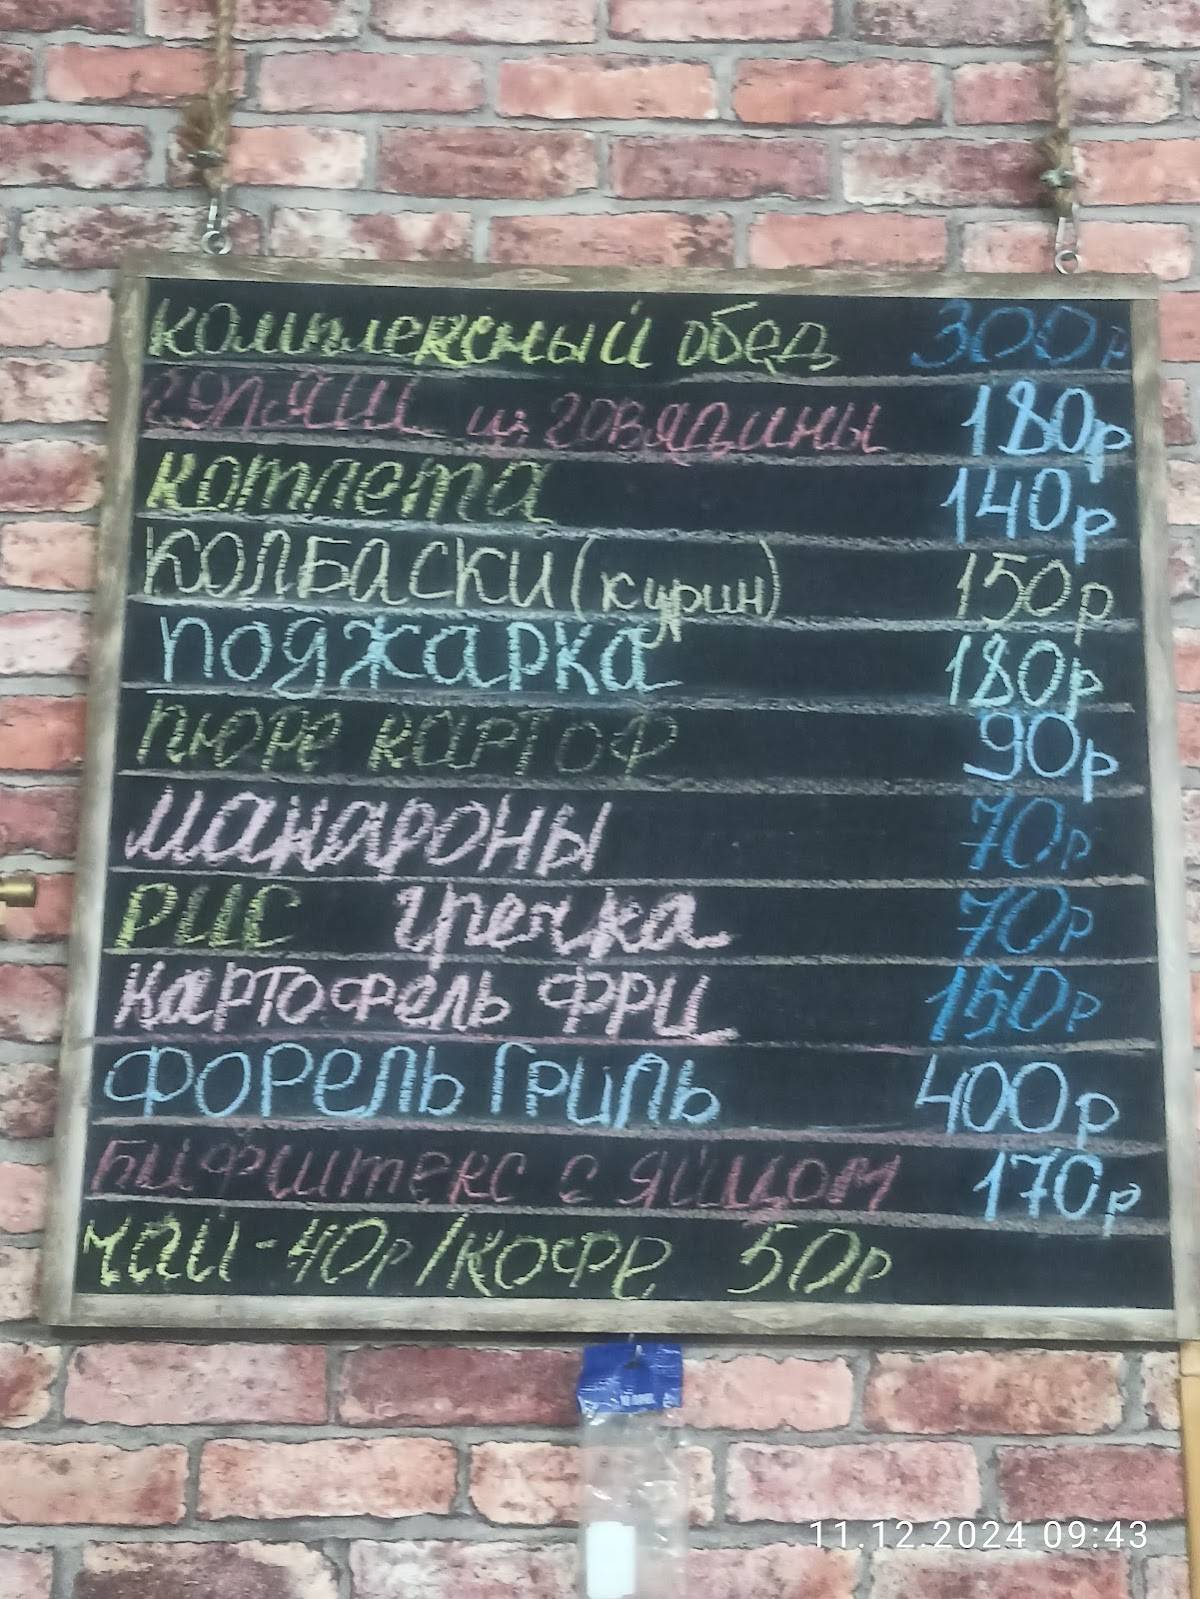 комплексный обед 300р
гуляш из говядины 180р
котлета 140р
КОЛБАСКИ (курин) 150р
поджарка 180р
пюре картоф 90р
макароны 70р
рис гречка 70р
картофель фри 150р
форель гриль 400р
бифштекс с яйцом 170р
чай - 40р/кофе 50р
11.12.2024 09:43